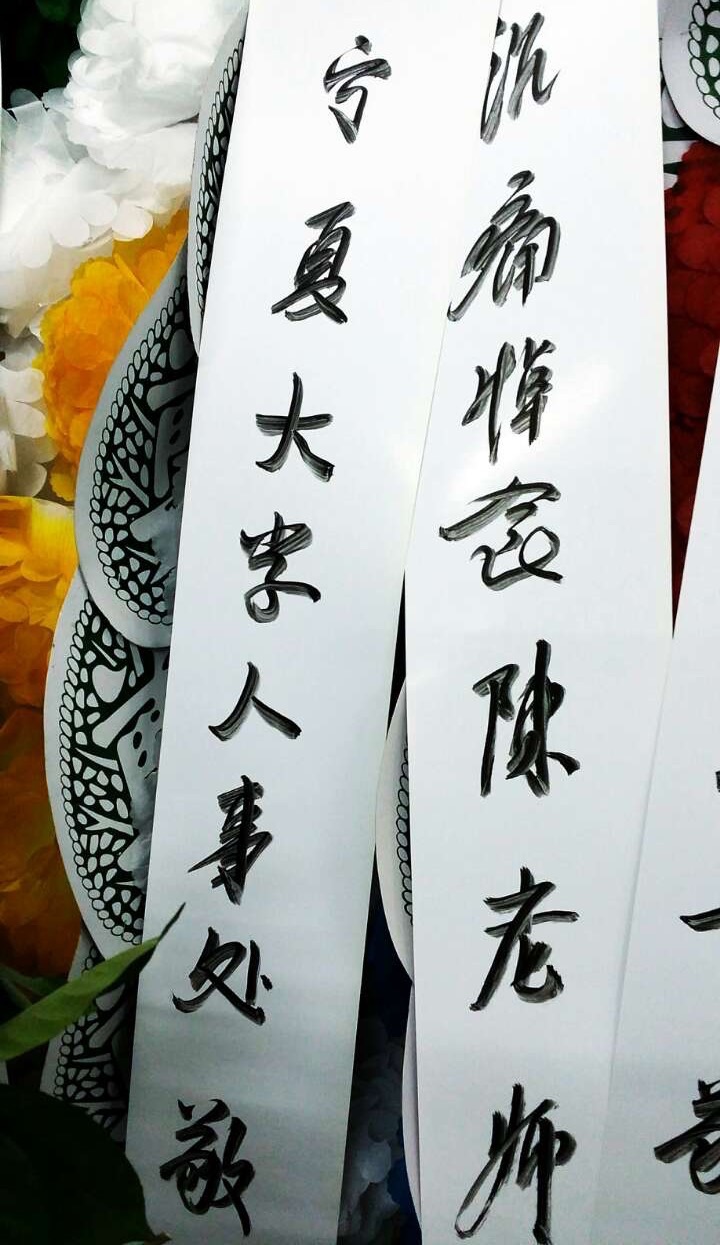 沉痛悼念陈老师
宁夏大学人事处敬